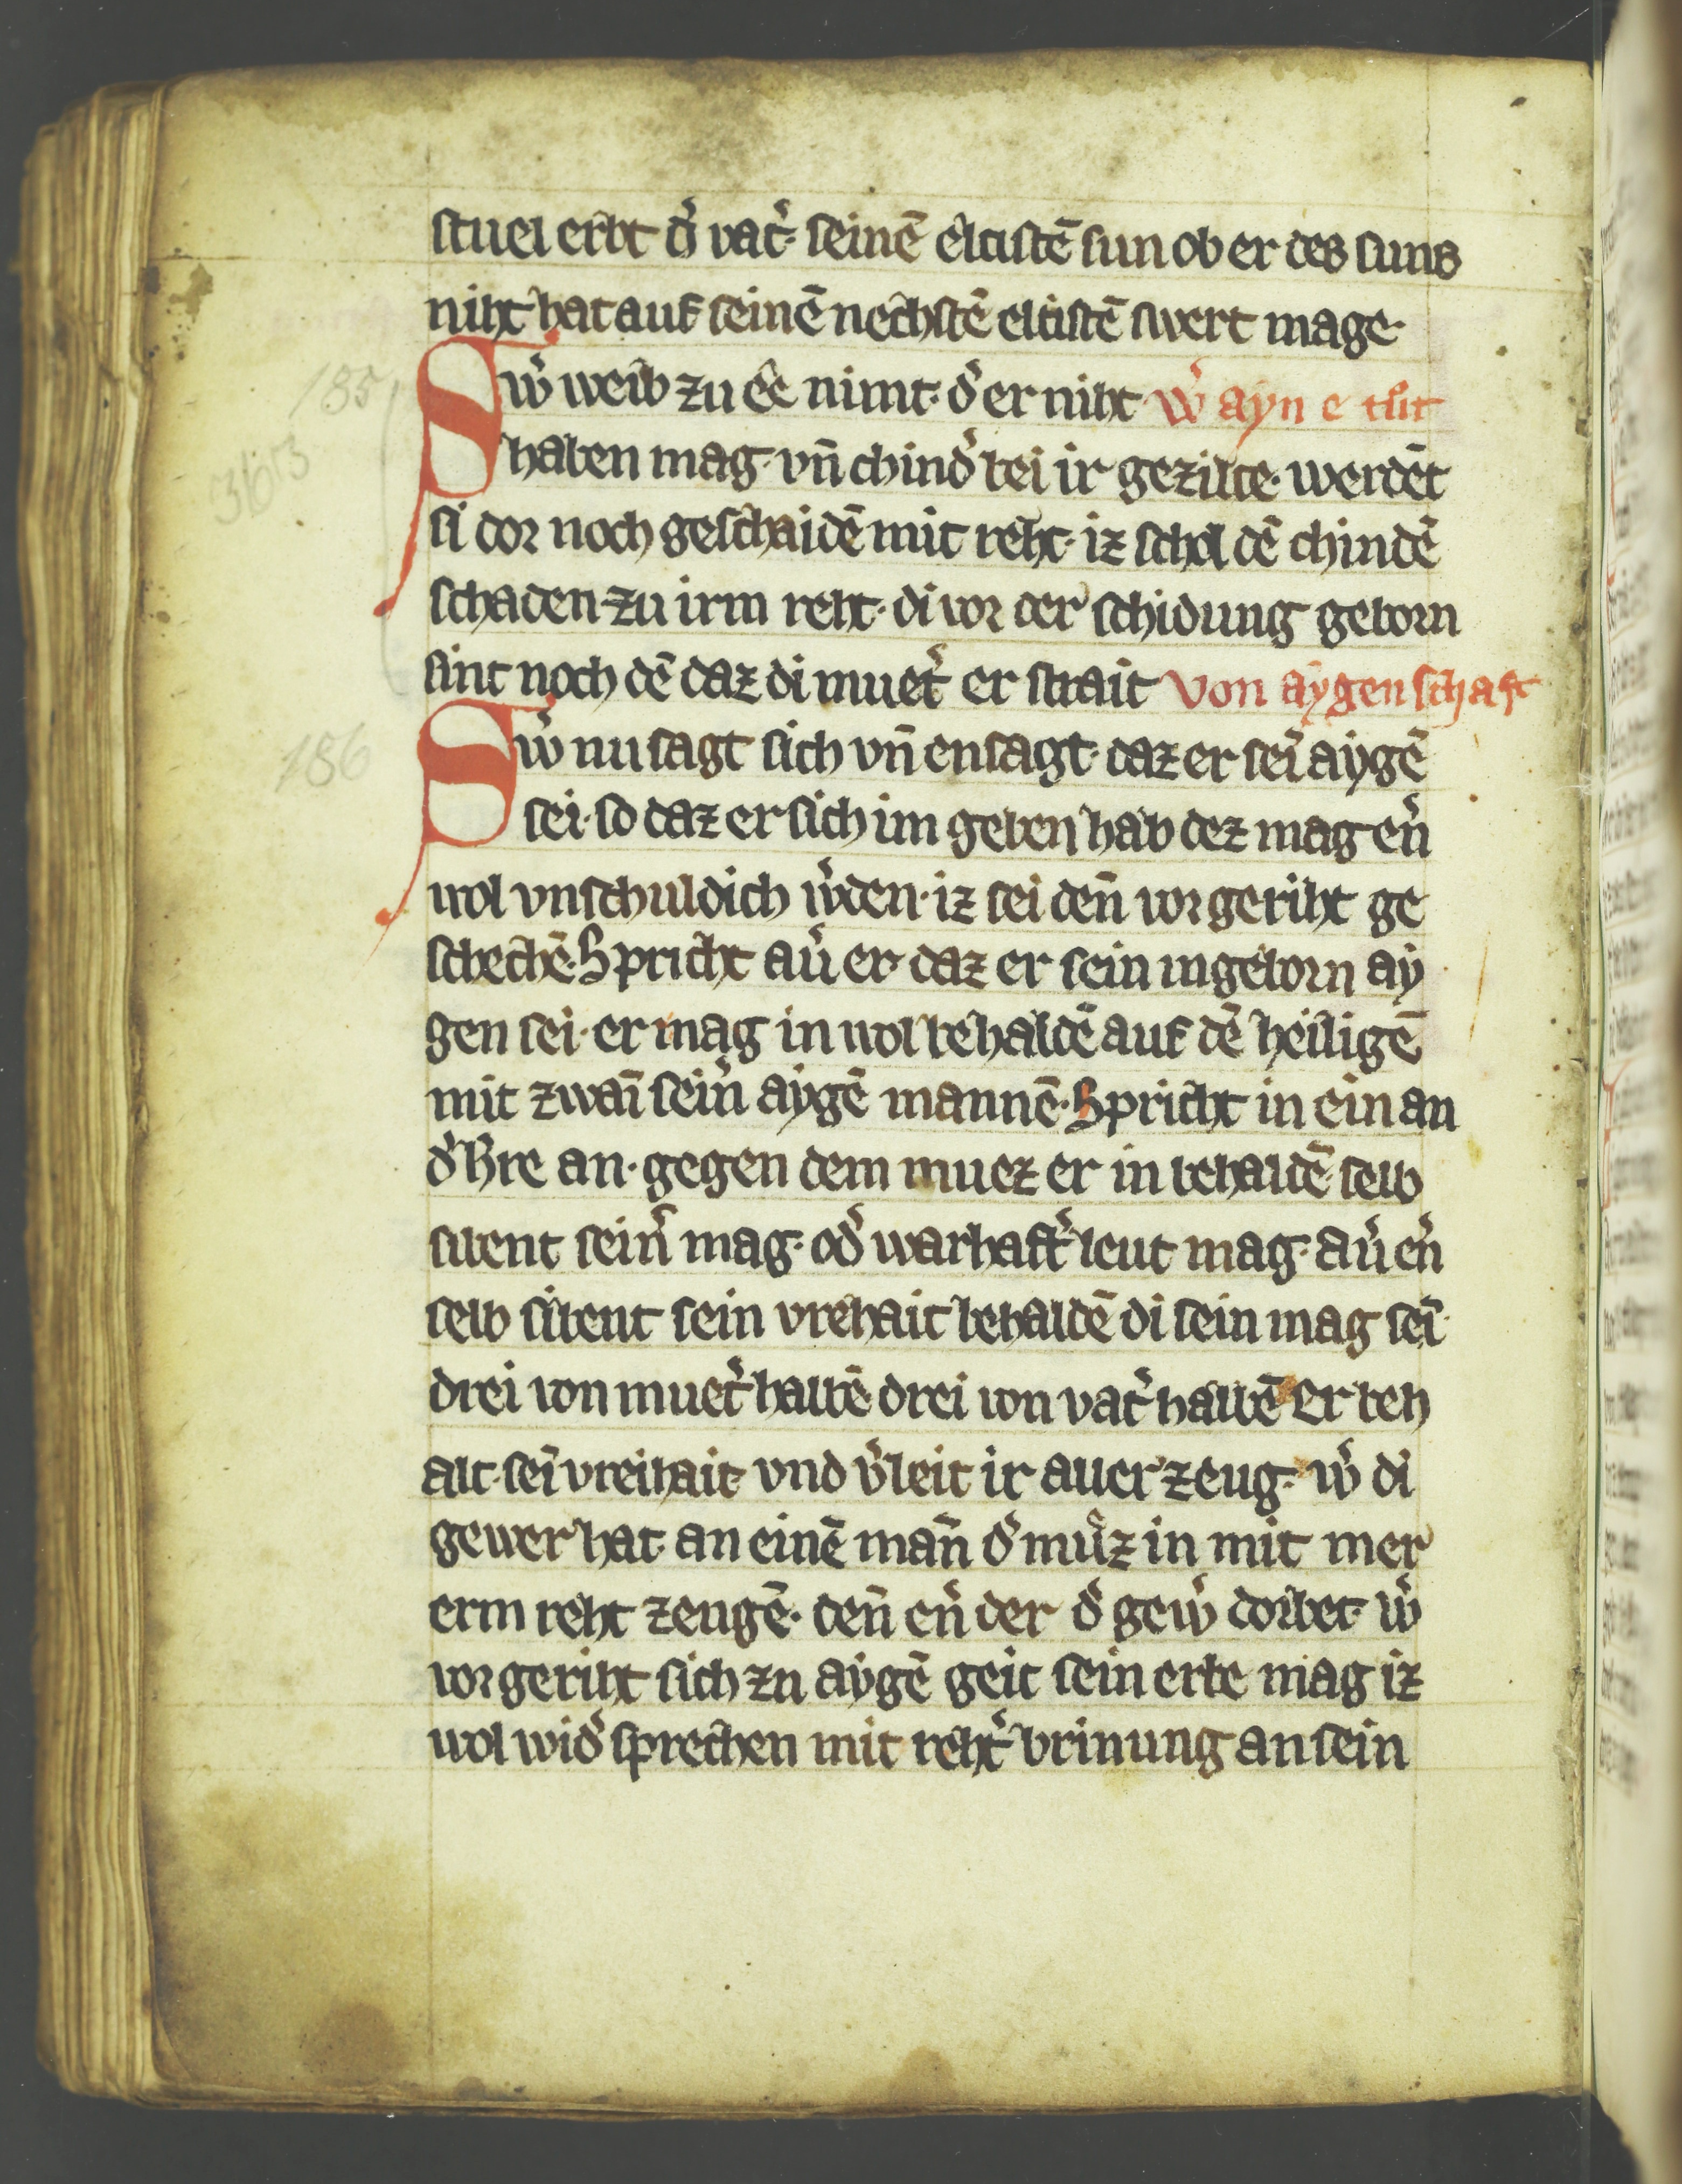 stuel erbt d͛ vat͛. seinē eltistē sun ob er des suns
niht hat auf seinē nechstē eltistē swert mage.
185 Sw͛ weib zu ee nimt. d͛ er niht w͛ ayn e tut
3613 haben mag. vn̄ chind͛ bei ir gezilte. werdēt
si dor noch geschaidē mit reht. iz schol dē chindē
schaden. zu irm reht. di vor der schidung geborn
sint noch dē daz di muet͛ er strait von aygenschaft
186 Sw͛ nu sagt sich vn̄ ensagt. daz er sei͞ aygē
sei. so daz er sich im geben hab dez mag en͛
wol vnschuldich w͛den. iz sei den̄ vor geriht ge
schechē. Spricht au͛ er. daz er sein ingeborn ay
gen sei. er mag in wol behaldē auf dē heiligē
mit zwai͞ sein͛ aygē mannē. Spricht in ein an
d͛ h͛re an. gegen dem muez er in behaldē. selb
sibent sein͛ mag. od͛ warhaft͛ leut mag. au͛ en͛
selb sibent sein vrehait behaldē di sein mag sei͞.
drei von muet͛ halbē drei von vat͛ halbē Er beh
alt. sei͞ vreihait. vnd v͛leit ir auer zeug. w͛ di
gewer hat. an einē man̄ d͛ muͤz in mit mer
erm reht zeugē. den̄ en͛ der d͛ gew͛ dorbet. w͛
vor geriht sich zu aygē geit sein erbe mag iz
wol wid͛ sprechen mit reht͛ brinung an sein